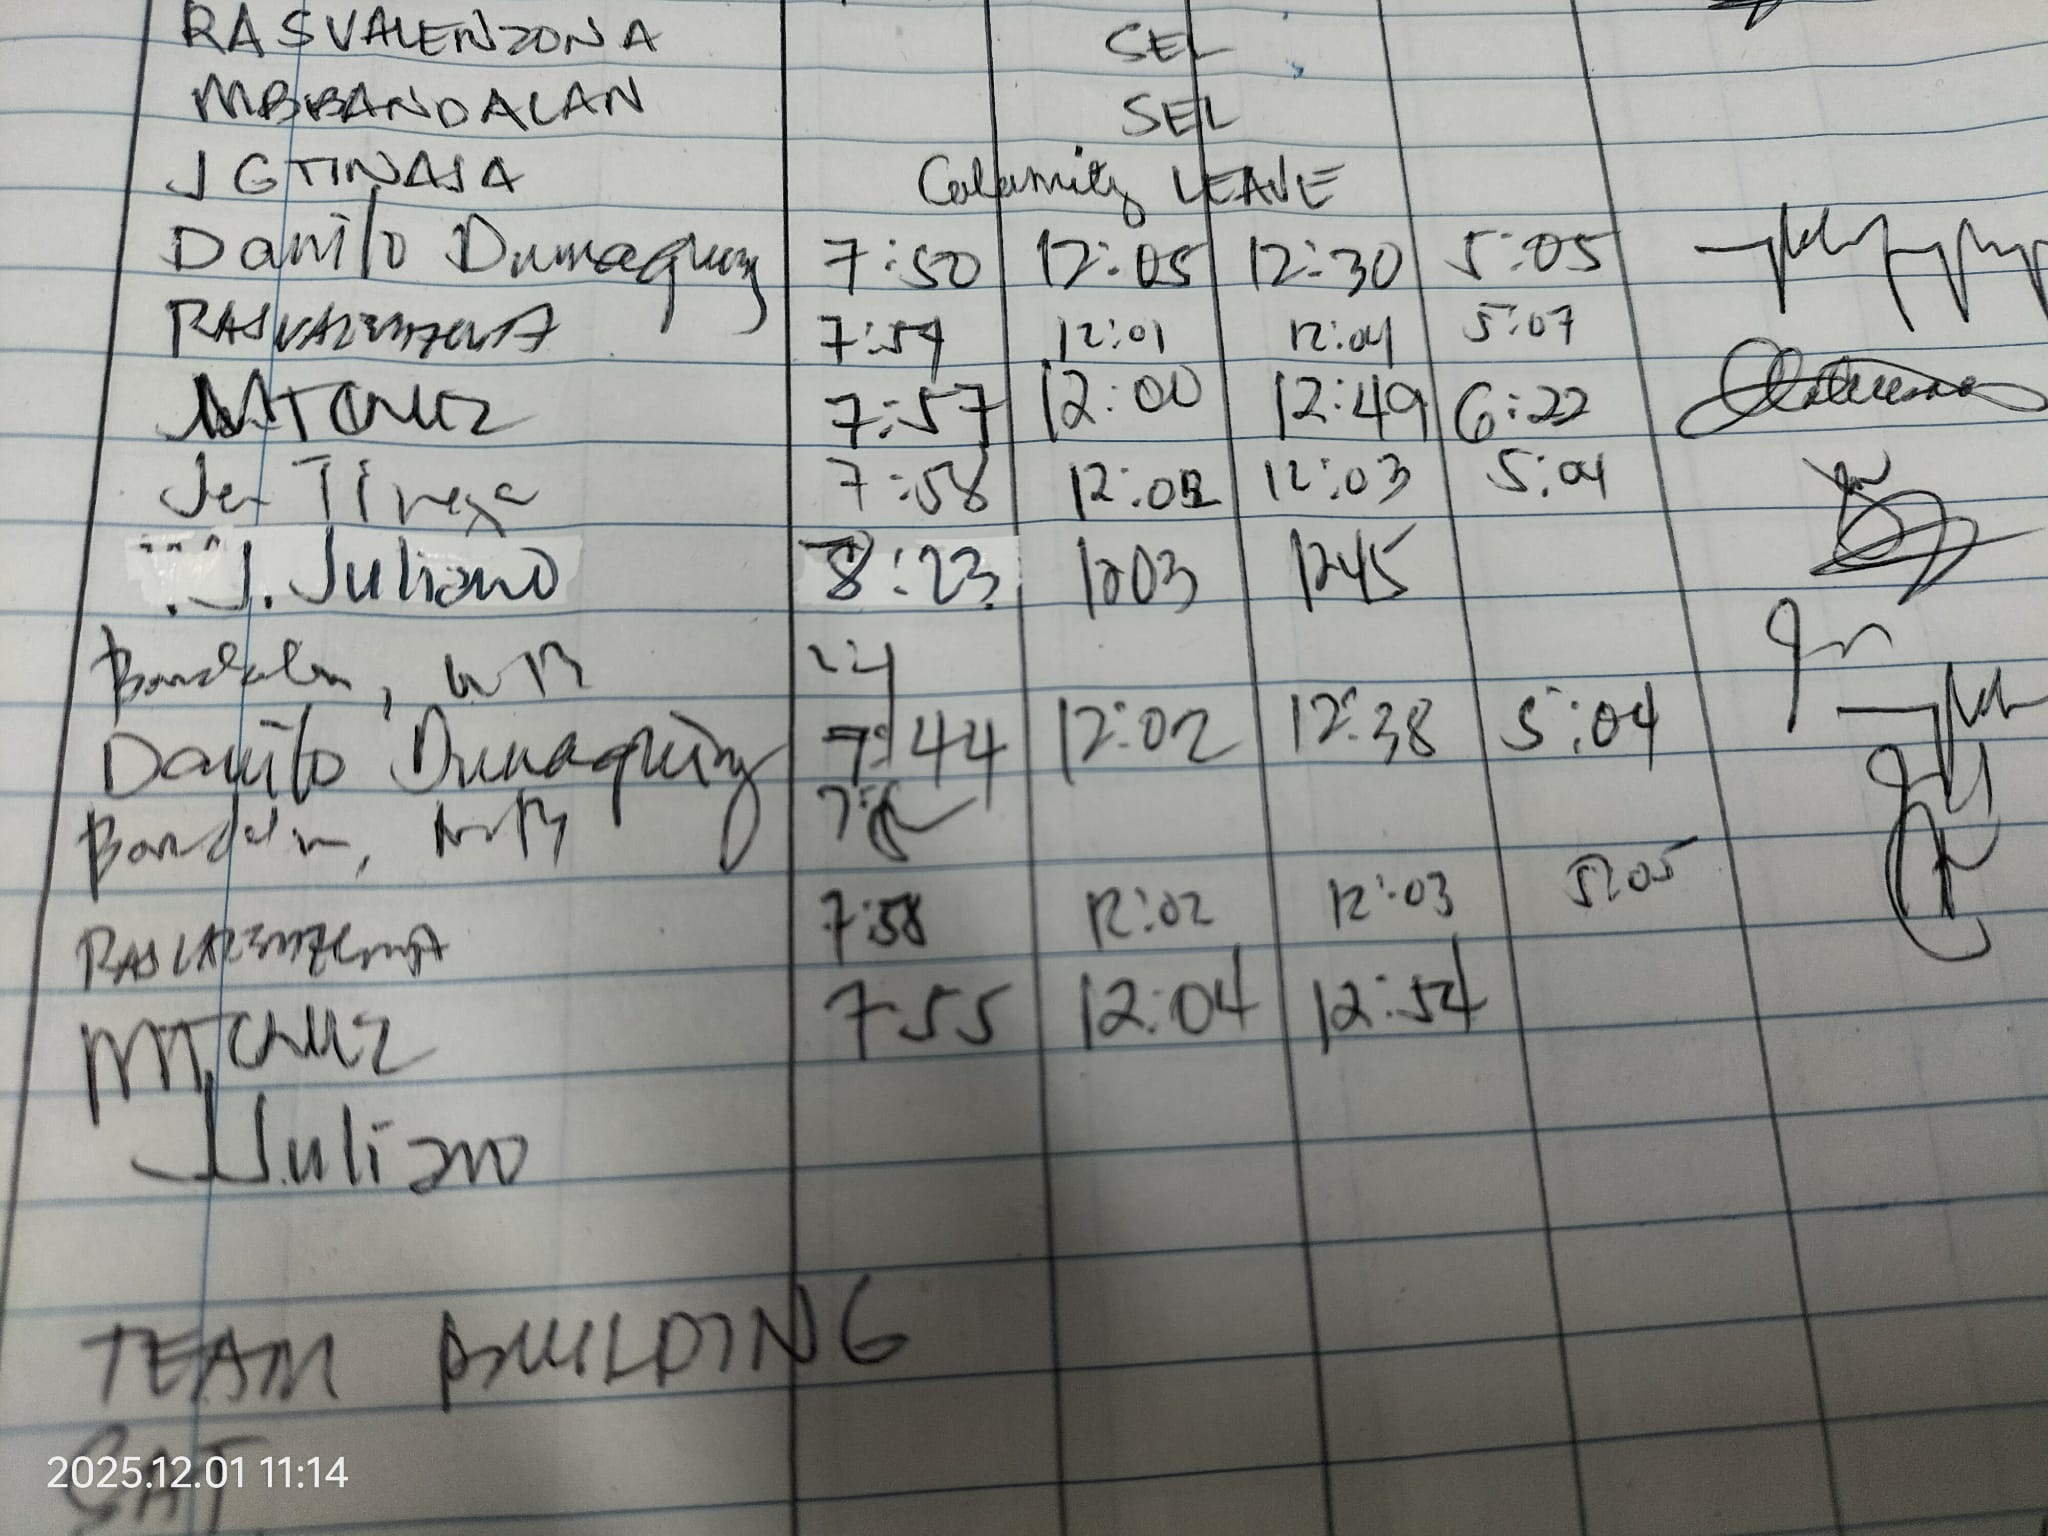 RASVALENZONA SEL
MBBANDALAN SEL
JGTINAJA Calamity LEAVE
Danilo Dumaquing 7:50 12:05 12:30 5:05
RASVALENZONA 7:59 12:01 12:04 5:07
MTCRUZ 7:57 12:00 12:49 6:22
Jen 7:58 12:02 12:03 5:04
J. Juliano 8:23 1203 1245
Bandalan, MB
Danilo Dumaquing 7:44 12:02 12:38 5:04
Bandalan, MB
RASVALENZONA 7:58 12:02 12:03 5:05
MTCRUZ 7:55 12:04 12:54
JJuliano
TEAM BUILDING
SAT
2025.12.01 11:14